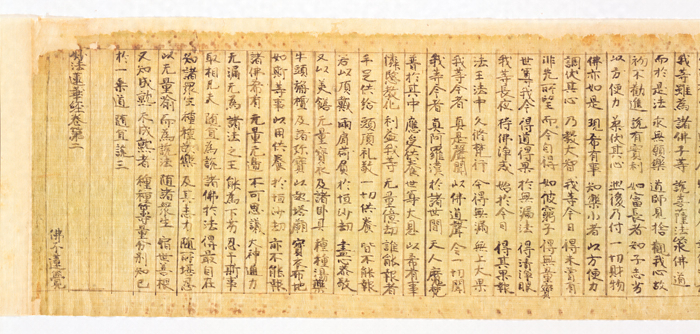 我等雖為 諸佛子等 說菩薩法 以求佛道
而於是法 永无願樂 導師見捨 觀我心故
初不勸進 說有實利 如富長者 知子志劣
以方便力 柔伏其心 然後乃付 一切財物
佛亦如是 現希有事 知樂小者 以方便力
調伏其心 乃教大智 我等今日 得未曾有
非先所望 而今自得 如彼窮子 得无量寶
世尊我今 得道得果 於无漏法 得清淨眼
我等長夜 持佛淨戒 始於今日 得其果報
法王法中 久修梵行 今得无漏 无上大果
我等今者 真是聲聞 以佛道聲 令一切聞
我等今者 真阿羅漢 於諸世間 天人魔梵
普於其中 應受供養 世尊大恩 以希有事
憐愍教化 利益我等 无量億劫 誰能報者
手足供給 頭頂礼敬 一切供養 皆不能報
若以頂戴 兩肩荷負 於恒沙劫 盡心恭敬
又以美饍 无量寶衣 及諸卧具 種種湯藥
牛頭栴檀 及諸珍寶 以起塔廟 寶衣布地
如斯等事 以用供養 於恒沙劫 亦不能報
諸佛希有 无量无邊 不可思議 大神通力
无漏无為 諸法之王 能為下劣 忍于斯事
取相凡夫 隨宜為說 諸佛於法 得最自在
知諸眾生 種種欲樂 及其志力 隨所堪任
以无量喻 而為說法 隨諸眾生 宿世善根
又知成熟 未成熟者 種種籌量 分別知已
於一乘道 隨宜說三
妙法蓮華經卷第二